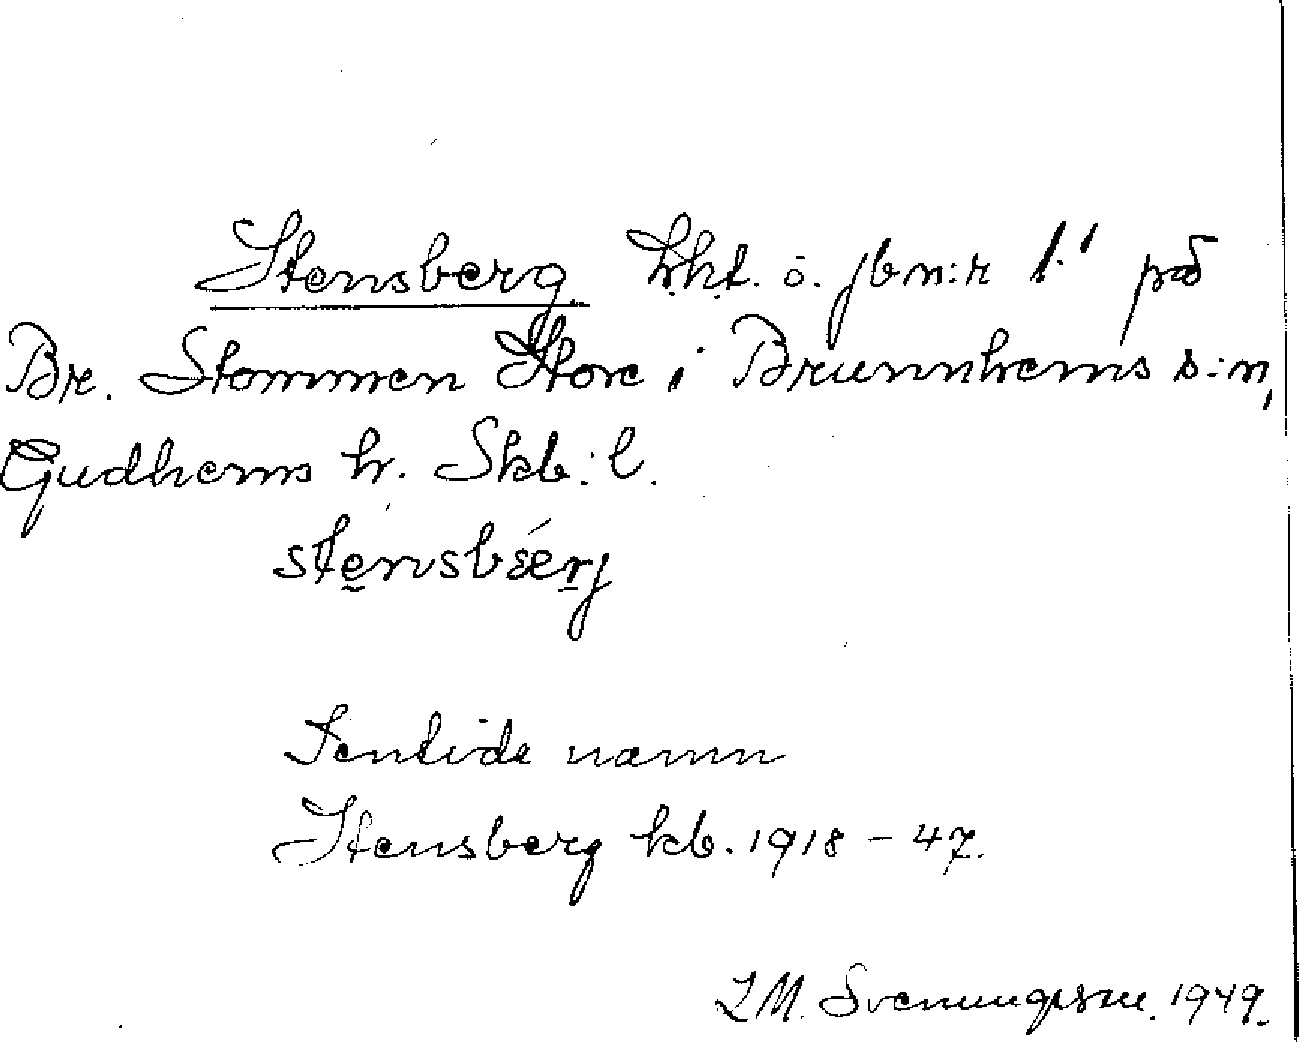 Stensberg h.h.t. o. jbn:r 1:1 på
Br. Stommen Store i Brunnhems s:n,
Gudhems h. Skb: l.
stẹnsbærj
Sentida namn
Stensberg kb. 1918 – 47.
L M. Svenungsson. 1949.